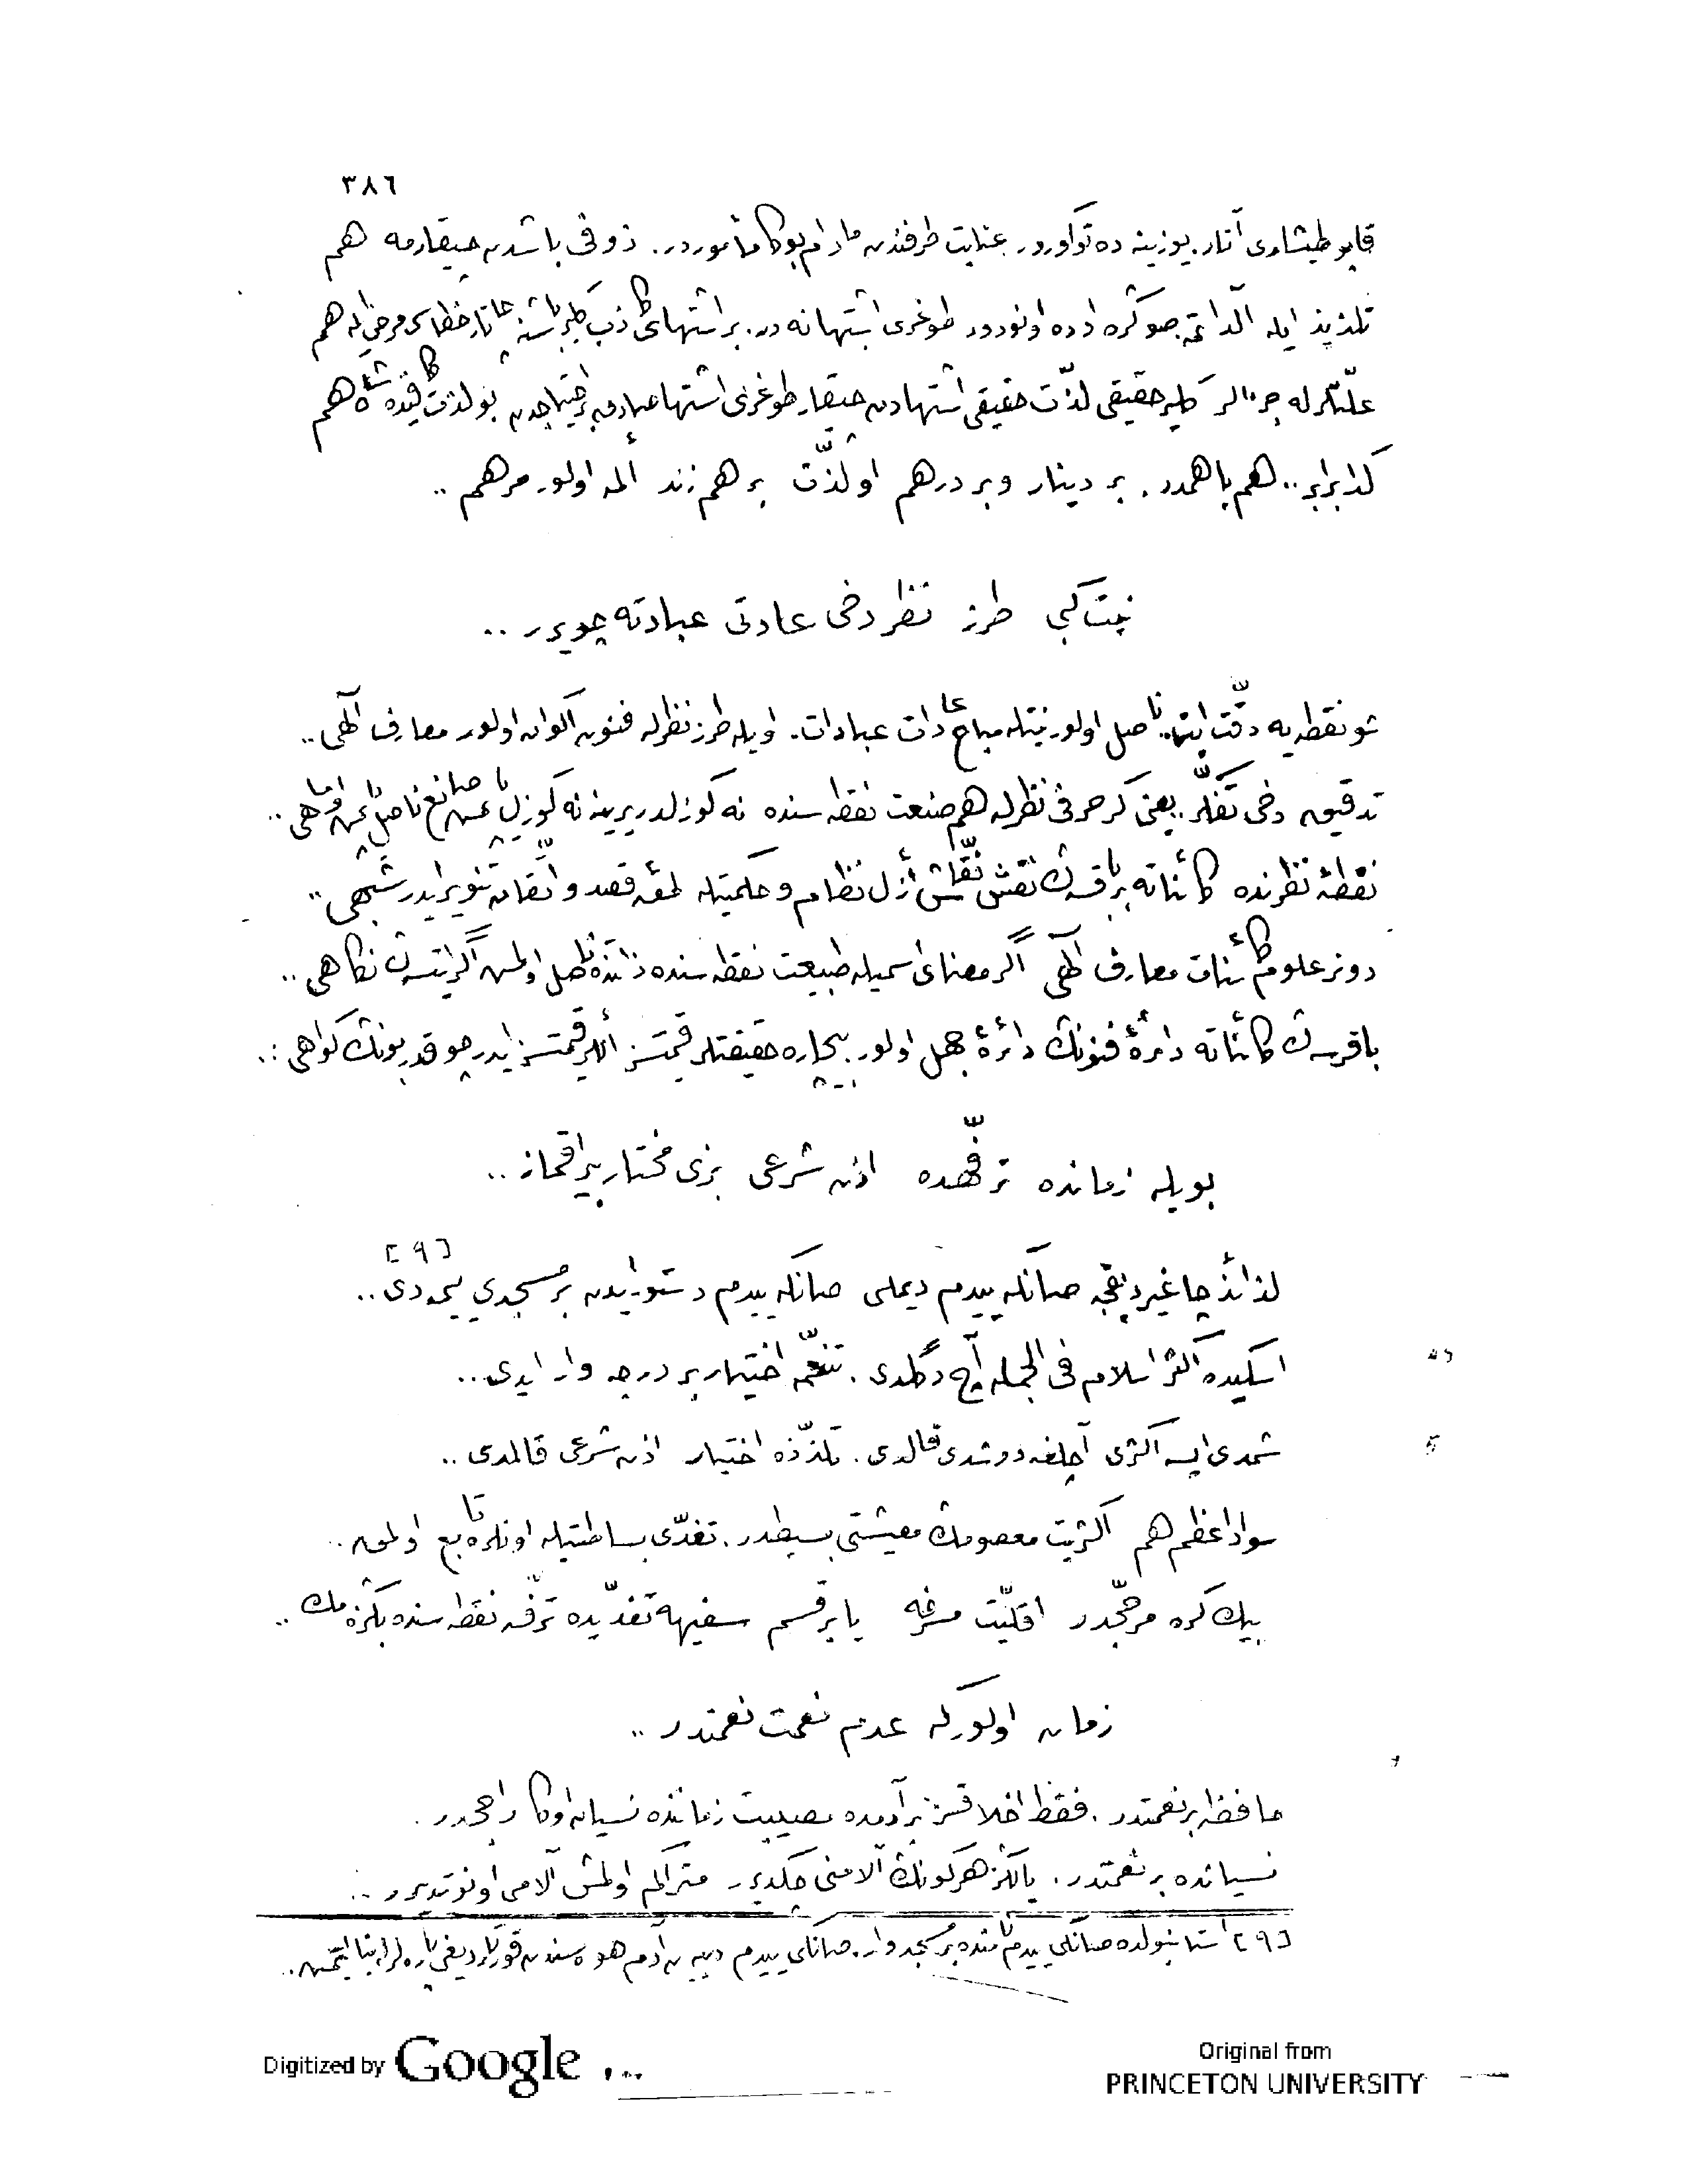 ٣٨٦
قاپو طیشاری آتار. یوزینه ده توکاورور. عنایت طرفندن مادام بوکا مأموردر. ذوقی باشدن چیقارمه هم
تلذیذ ایله آلداتمه. صوکره او ده اونودور طوغری اشتها نه در. بر اشتهای کاذب کلیر باشنه
علتلرله جزالر کلیر. حقیقی لذت حقیقی اشتهادن چیقار طوغری اشتها صادق بر احتیاجدن. بو لذت کافیده شاه هم
کدا برابر.. هم باهمدر. بر دینار و بر درهم او لذت بر هم زند المه اولور مرهم..
نیت کبی طرز نظر دخی عادتی عبادته چویرر..
شو نقطه یه دقت ایت. ناصل اولور نیتله مباح عادات عبادات. اویله طرز نظرله فنون اکوان اولور معارف الٓهی..
تدقیق دخی تفکر. یعنی گر حرفی نظرله هم صنعت نقطه سنده نه کوزلدر یرینه نه کوزل یاپمش صانع ناصل یاپمش او ماهی..
نقطۀ نظرنده کائناته بر باقسه ڭ نقش نقاش ازل نظام و حکمتیله لمعۀ قصد و اتقان تنویر ایدر شبهی..
دونر علوم کائنات معارف الٓهی. اگر معنای اسمیله طبیعت نقطه سنده ذاتنده ناصل اولمش اگر ایتسه ڭ نگاهی..
باقرسه ڭ کائناته دائرۀ فنونڭ دائرۀ جهل اولور. بیچاره حقیقتلر قیمتسز أللر قیمتسز ایدر چوقدر بونڭ کواهی..
بویله زمانده ترفهده اذن شرعی بزی مختار بیراقماز..
لذائذ چاغیردقجه صانکه ییدم دیملی صانکه ییدم دستور ایدن بر مسجدی ییمدی.. [٩]
اسکیده اکثر اسلام فی الجمله آچ دگلدی. تنعمه اختیار بر درجه وار ایدی..
شمدی ایسه اکثری آچلغه دوشدی قالدی. تلذذه اختیار اذن شرعی قالمدی..
سواد اعظم هم اکثریت معصومڭ معیشتی بسیطدر. تغدی بساطتیله اونلره تابع اولمق..
بیڭ کره مرجحدر اقلیت مسرفه یا بر قسم سفیهه تغدیده ترفه نقطه سنده بکزه مك..
زمان اولور که عدم نعمت نعمتدر..
حافظه بر نعمتدر. فقط اخلاقسز بر آدمده مصیبت زماننده نسیان اوکا راجحدر.
نسیانده بر نعمتدر. یالکز هر کونڭ آلامنی چکدیرر متراکم اولمش آلامی اونوتدیرر..
[٩] استانبولده صانکه ییدم نامنده بر مسجد وار. صانکه ییدم دیین آدم هوسندن قورتاردیغی پاره لرله بنا ایتمش..
Digitized by Google
Original from
PRINCETON UNIVERSITY